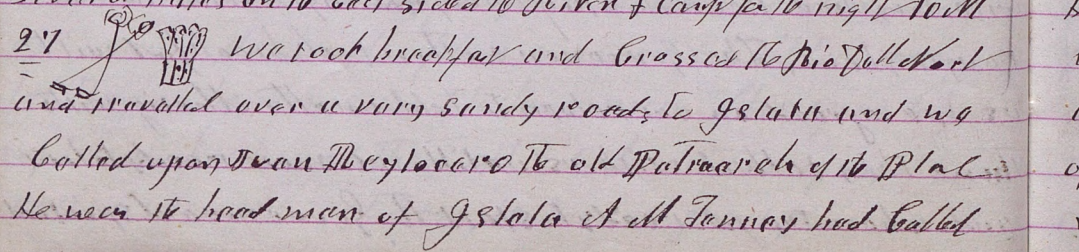 & Camp for the night 10 M
27 We took breakfast and Crossed the Rio Dell Nort
and travelled over a vary sandy roads to Gslata and we
Called upon Juan the old Patriarch of the Place
He was the head man of Gslala A M Tenney had Called